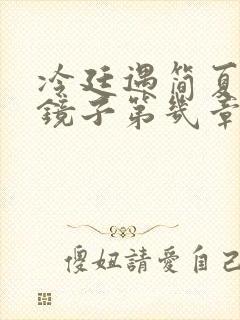 冷廷遇简夏
镜子第几章
傻妞請愛自己